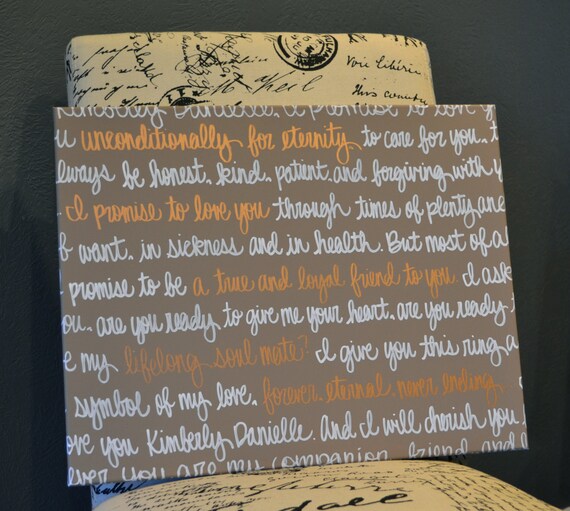 Voir Libérie
This country
Kimberly Danielle, I promise to love y
u unconditionally for eternity, to care for you, t
lways be honest, kind, patient, and forgiving with y
I promise to love you through times of plenty, and
f want, in sickness and in health. But most of a
promise to be a true and loyal friend to you. I ask
ou, are you ready to give me your heart, are you ready t
e my lifelong soul mate? I give you this ring a
symbol of my love, forever, eternal, never ending
ove you Kimberly Danielle. And I will cherish you
ever you are my companion, friend, and l